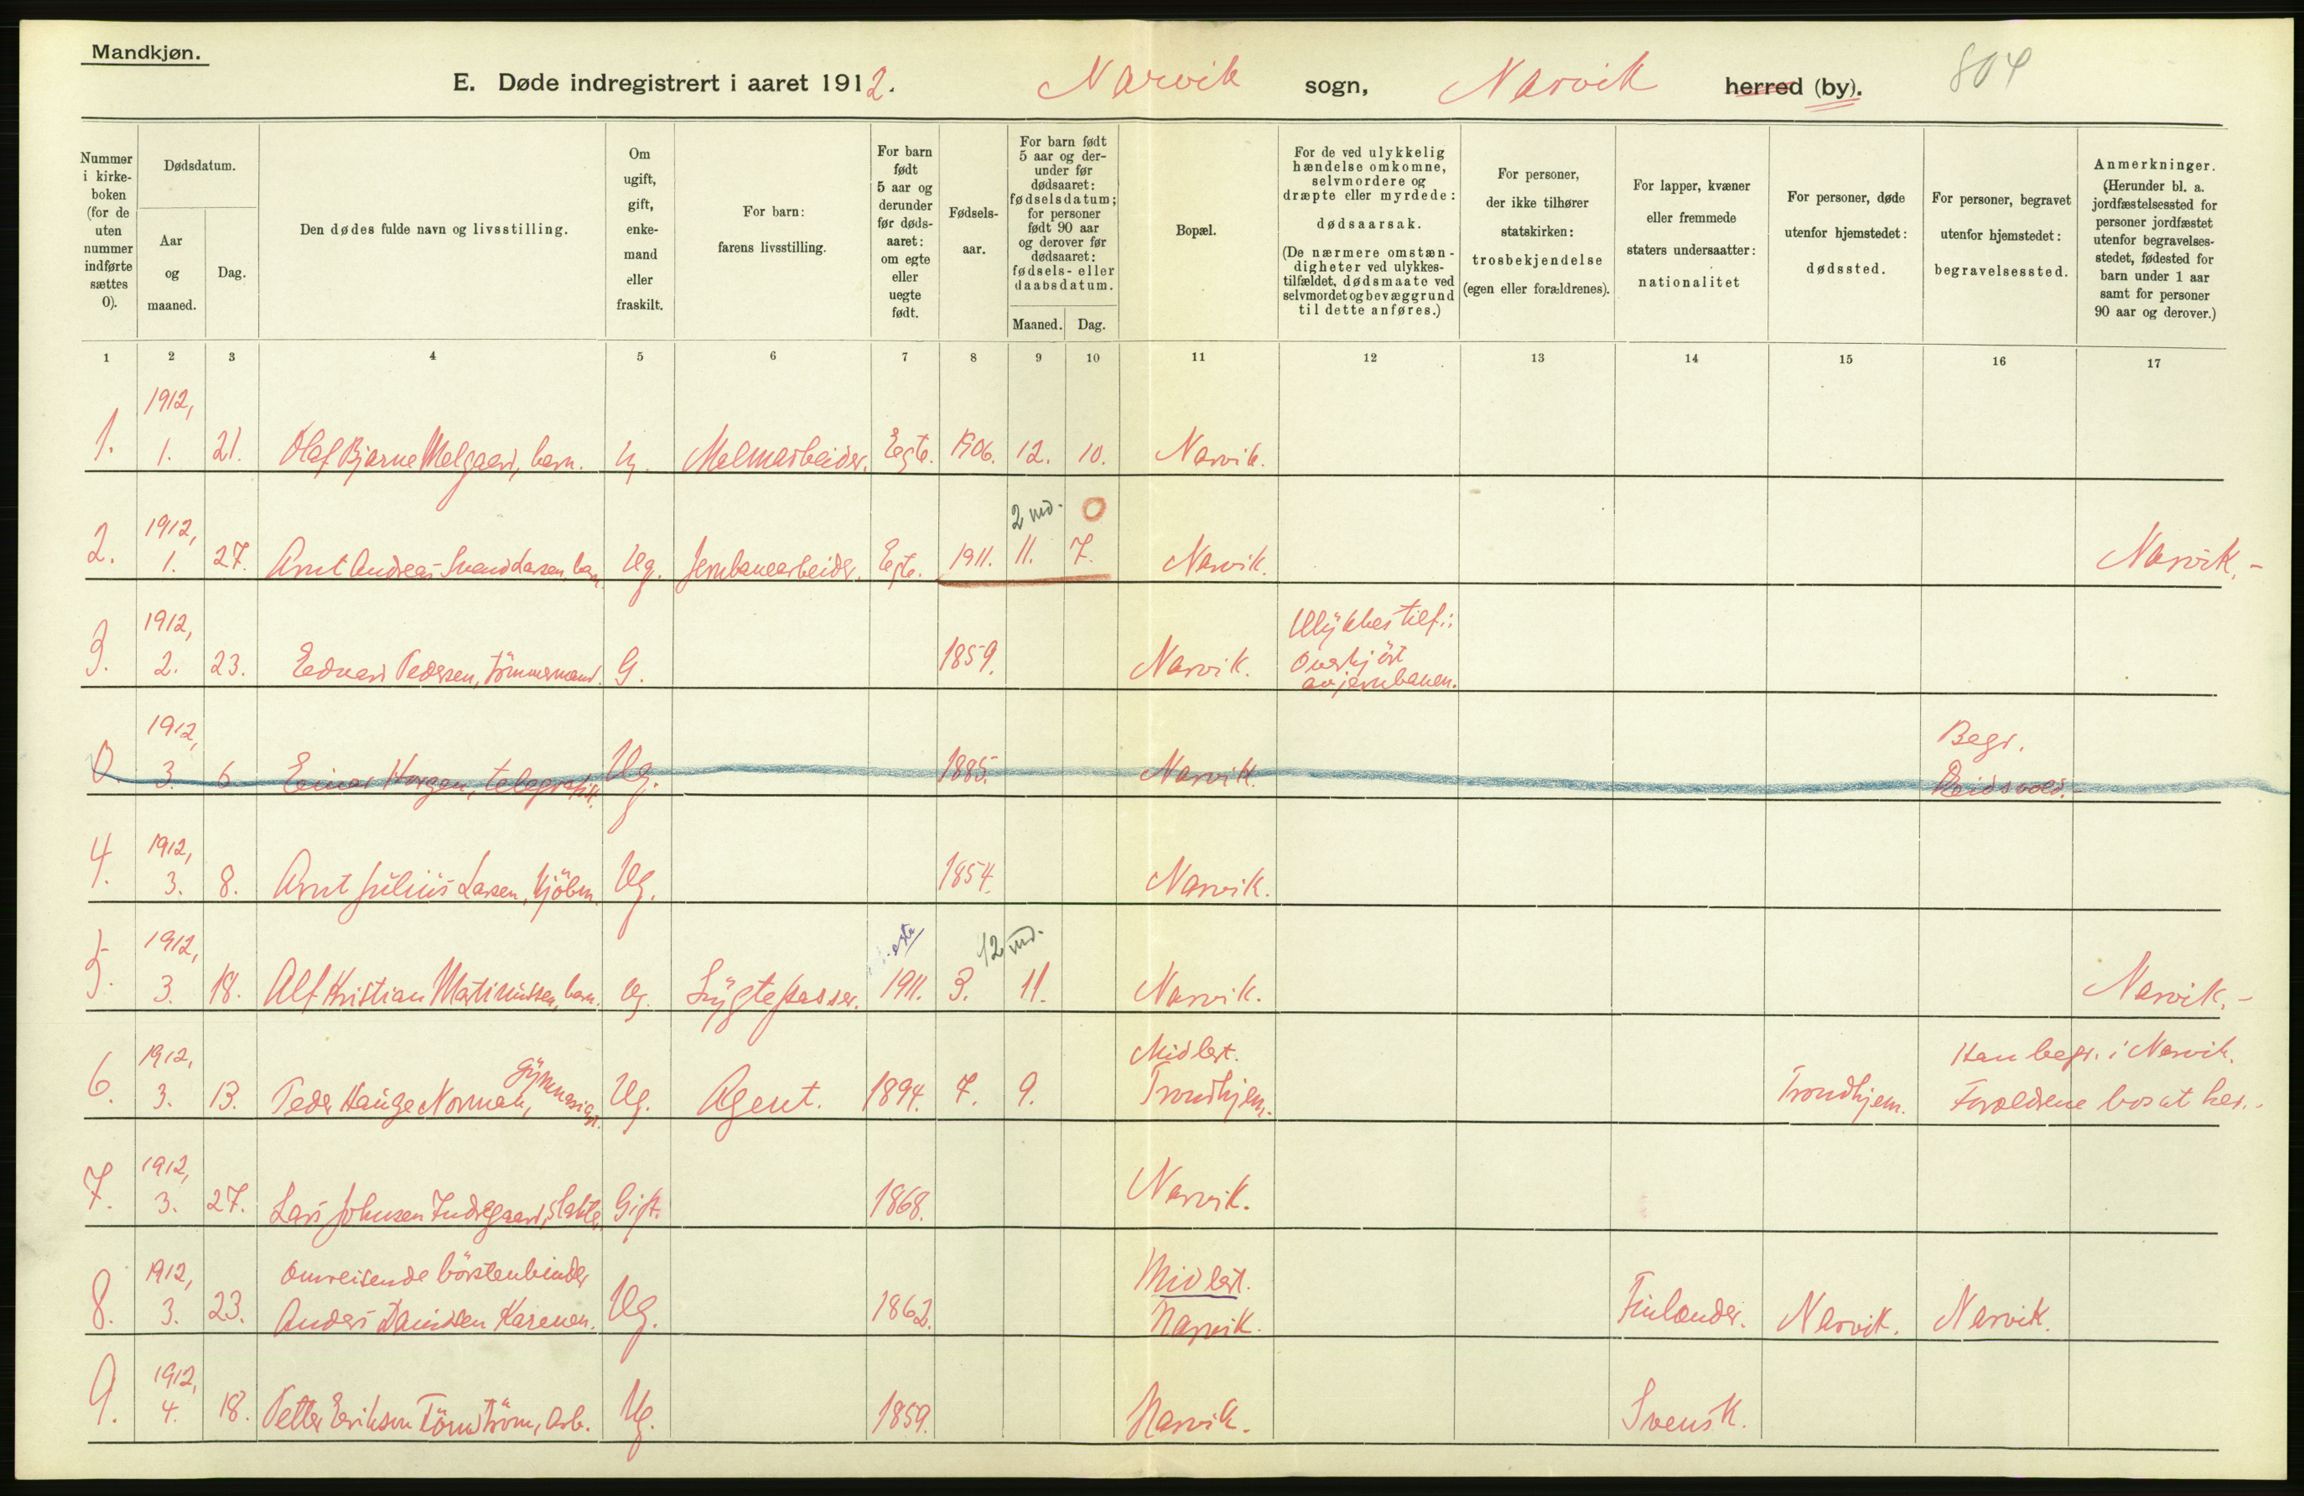 Mandkjøn.
E. Døde indregistrert i aaret 1912. Narvik sogn, Narvik herred (by). 804
Nummer i kirke- boken (for de uten nummer indførte sættes 0).
Dødsdatum.
Aar og maaned.
Dag.
Den dødes fulde navn og livsstilling.
Om ugift, gift, enke- mand eller fraskilt.
For barn: farens livsstilling.
For barn født 5 aar og derunder før døds- aaret: om egte eller uegte født.
Fødsels- aar.
For barn født 5 aar og der- under før dødsaaret: fødselsdatum; for personer født 90 aar og derover før dødsaaret: fødsels- eller daabsdatum.
Maaned. Dag.
Bopæl.
For de ved ulykkelig hændelse omkomne, selvmordere og dræpte eller myrdede: dødsaarsak. (De nærmere omstæn- digheter ved ulykkes- tilfældet, dødsmaate ved selvmordet og bevæggrund til dette anføres.)
For personer, der ikke tilhører statskirken: trosbekjendelse (egen eller forældrenes).
For lapper, kvæner eller fremmede staters undersaatter: nationalitet
For personer, døde utenfor hjemstedet: dødssted.
For personer, begravet utenfor hjemstedet: begravelsessted.
Anmerkninger. (Herunder bl. a. jordfæstelsessted for personer jordfæstet utenfor begravelses- stedet, fødested for barn under 1 aar samt for personer 90 aar og derover.)
1 2 3 4 5 6 7 8 9 10 11 12 13 14 15 16 17
1912,
1. 1. 21. Olaf Bjarne Melgaard, barn. U. Malmarbeider. Egte. 1906. 12. 10. Narvik.
2 md. 0
1912,
2. 1. 27. Arnt Andreas Larsen, barn. Ug. Jernbanearbeider. Egte. 1911. 11. 7. Narvik. Narvik.-
1912, Ulykkestilf.:
3. 2. 23. Edvard Pedersen, tömmermand. G. 1859. Narvik. Overkjört
av jernbanen.
1912, Begr.
0. 3. 6. Einar Horgen, telegrafist. Ug. 1885. Narvik. Eidsvold.-
1912,
4. 3. 8. Arnt Julius Larsen, kjöbm. Ug. 1854. Narvik.
1912, 12 md.
5. 3. 18. Alf Kristian Martinussen, barn. Ug. Lygtepasser. 1911. 3. 11. Narvik. Narvik.-
1912, Gymnasiast. Midlert. Han begr. i Narvik.
6. 3. 13. Peder Hauge Norman, Ug. Agent. 1894. 7. 9. Trondhjem. Trondhjem. Forældrene bosat her.-
1912,
7. 3. 27. Lars Johnsen Indregaard, slakter. Gift. 1868. Narvik.
1912, Omreisende börstenbinder Midlert.
8. 3. 23. Anders Karenen. Ug. 1862. Narvik. Finlender. Narvik. Narvik.
1912,
9. 4. 18. Petter Eriksen Törnström, arb. Ug. 1859. Narvik. Svensk.